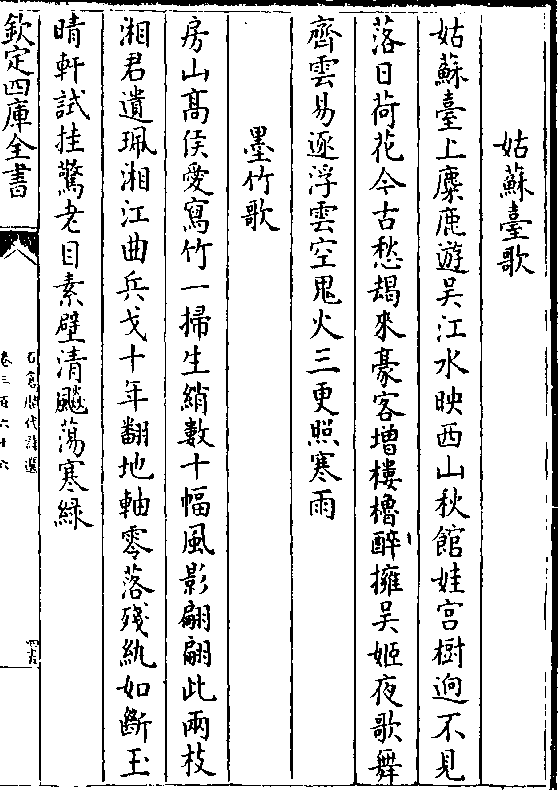 姑蘇臺歌
姑蘇臺上麋鹿遊吴江水映西山秋館娃宫樹逈不見
落日荷花今古愁朅來豪客增樓櫓醉擁吴姬夜歌舞
齊雲易逐浮雲空鬼火三更照寒雨
墨竹歌
房山髙侯愛寫竹一掃生綃數十幅風影翩翩此兩枝
湘君遺珮湘江曲兵戈十年翻地軸零落殘紈如斷玉
晴軒試挂驚老目素壁清飈蕩寒緑
欽定四庫全書
石倉歴代詩選
卷三百六十六